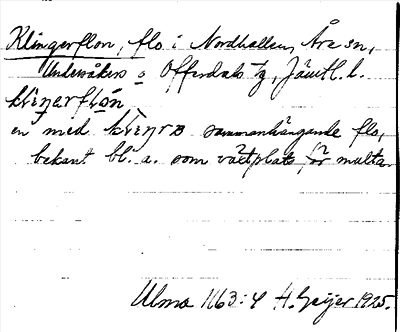 Klingerflon, flo i Nordhallen, Åre sn,
Undersåkers o Offerdals tg, Jämtl. l.
en med sammanhängande flo,
bekant bl. a. som växtplats för multer.
Ulma 1163:4 H. Geijer 1925.